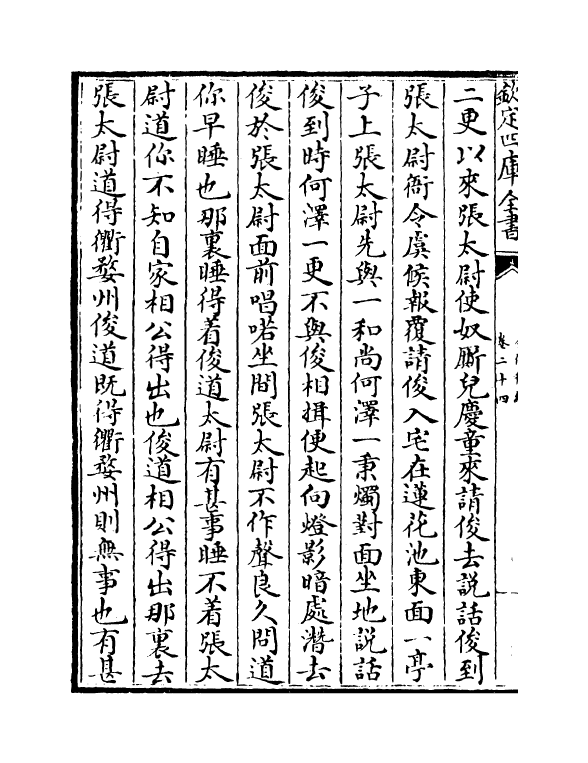 欽定四庫全書
卷二十四
二更以來張太尉使奴厮兒慶童來請俊去説話俊到
張太尉衙令虞候報覆請俊入宅在蓮花池東面一亭
子上張太尉先與一和尚何澤一秉燭對面坐地説話
俊到時何澤一更不與俊相揖便起向燈影暗處潛去
俊於張太尉面前唱喏坐間張太尉不作聲良久問道
你早睡也那裏睡得着俊道太尉有甚事睡不着張太
尉道你不知自家相公得出也俊道相公得出那裏去
張太尉道得衢婺州俊道既得衢婺州則無事也有甚